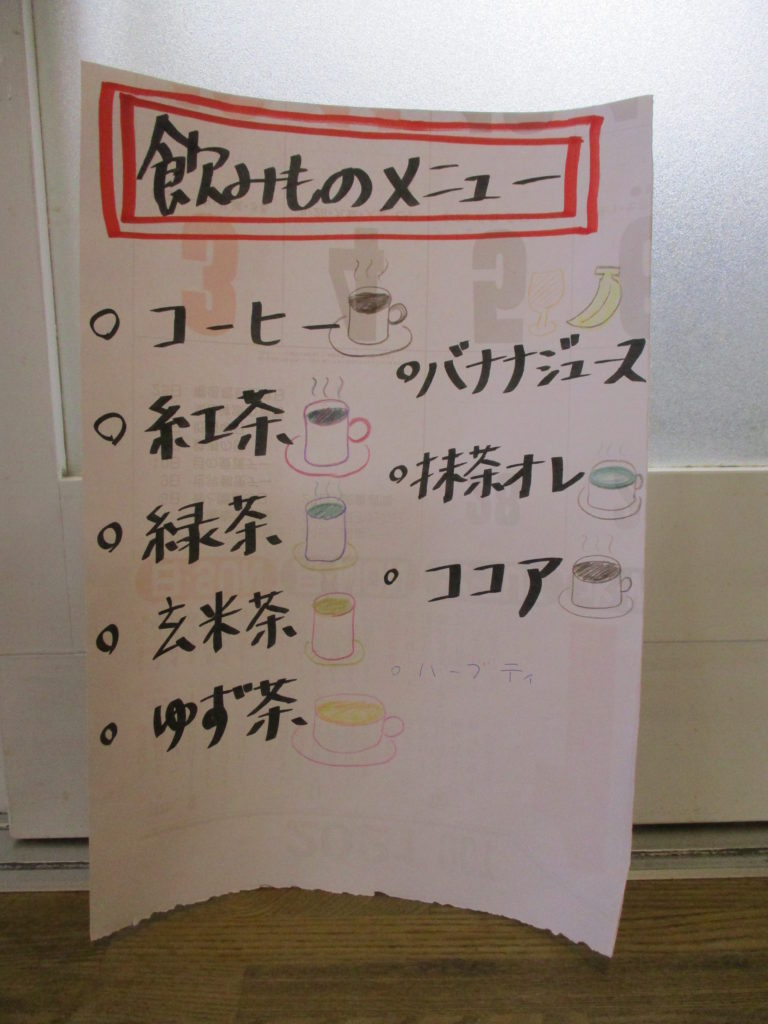 飲みものメニュー
○ コーヒー
○ 紅茶
○ 緑茶
○ 玄米茶
○ ゆず茶
○バナナジュース
○抹茶オレ
○ ココア
○ ハーブティ